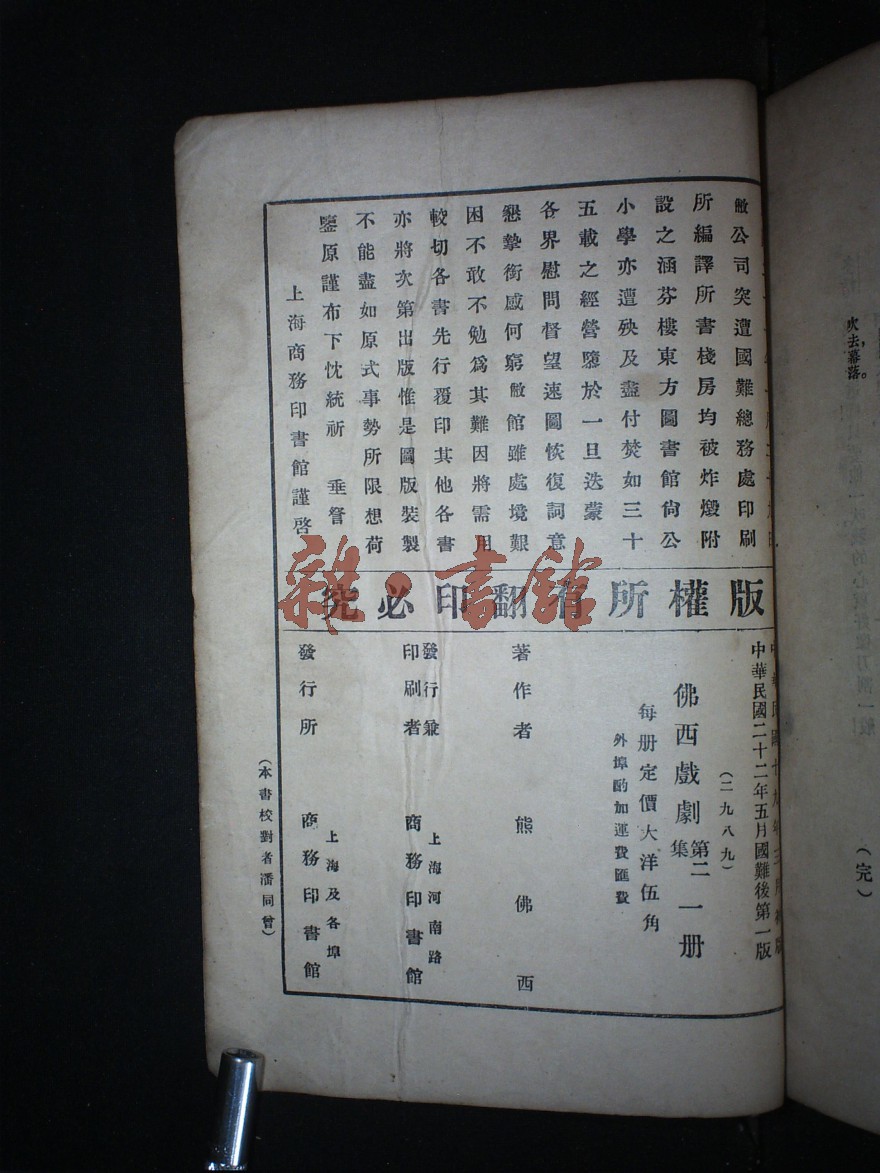 吹去，幕落。
（完）
敝公司突遭國難總務處印刷
所編譯所書棧房均被炸燬附
設之涵芬樓東方圖書館尙公
小學亦遭殃及盡付焚如三十
五載之經營隳於一旦迭蒙
各界慰問督望速圖恢復詞意
懇摯銜感何窮敝館雖處境艱
困不敢不勉爲其難因將需用
較切各書先行覆印其他各書
亦將次第出版惟是圖版裝製
不能盡如原式事勢所限想荷
鑒原謹布下忱統祈　垂詧
上海商務印書館謹啓
版權所有翻印必究
中華民國二十二年五月國難後第一版
（二九八九）
佛西戲劇第二集一册
每册定價大洋伍角
外埠酌加運費匯費
著作者　熊佛西
發行兼印刷者　上海河南路商務印書館
發行所　上海及各埠商務印書館
（本書校對者潘同曾）
雜·書館